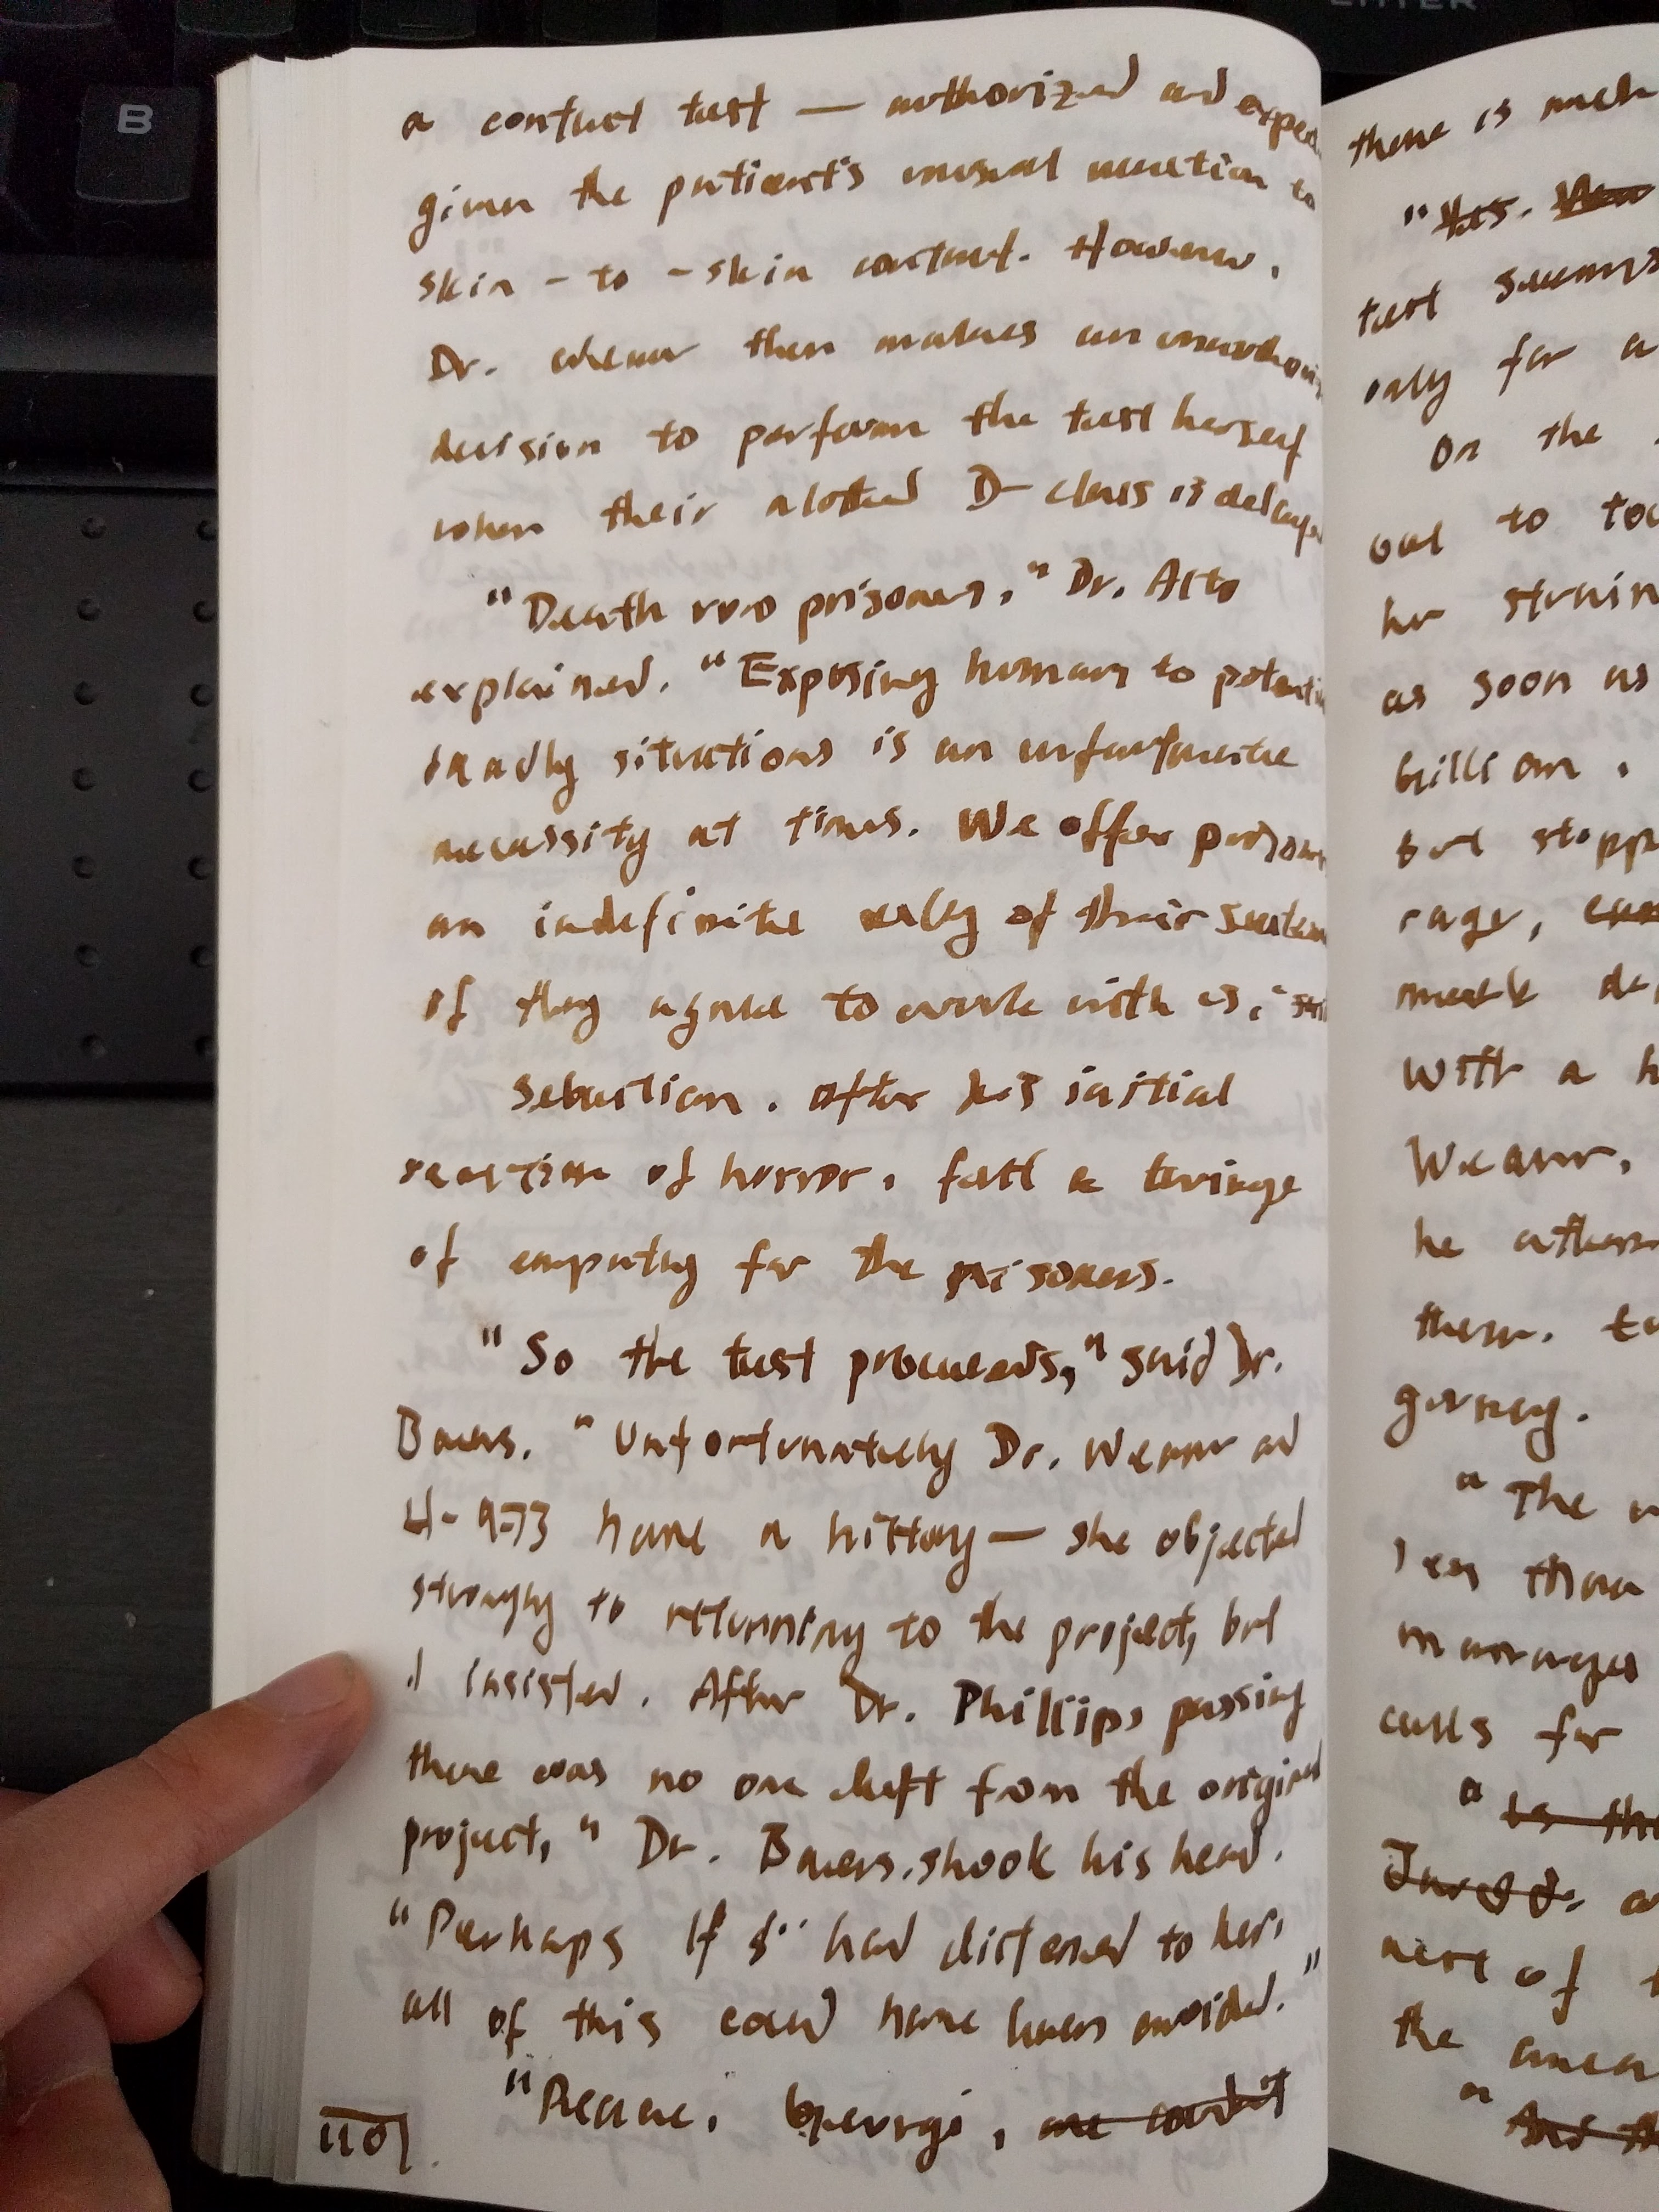 a contact test — authorized and expec
given the patient's unusual reaction to
skin-to-skin contact. However,
Dr. Weaver then makes an unauthori
decision to perform the test herself
when their aloted D-class is delaye
"Death row prisoners," Dr. Alto
explained. "Exposing humans to potenti
deadly situations is an unfortunate
necessity at times. We offer prisone
an indefinite of their senten
if they agree to work with us."
Sebastian, after his initial
reaction of horror, felt a twinge
of empathy for the prisoners.
"So the test proceeds," said Dr.
Bauers. "Unfortunately Dr. Weaver and
4-973 have a history — she objected
strongly to returning to the project, but
I insisted. After Dr. Phillips passing
there was no one left from the original
project," Dr. Bauers shook his head.
"Perhaps if I had listened to her,
all of this could have been avoided."
"Please, Georgi, we couldn't
110
there is much
"Yes.
test seems
only for a
On the
out to tou
her strain
as soon as
but stopp
rage,
With a h
Weaver,
he
them. to
gurney.
"The
manages
calls for
"Is the
nest of t
the
"And th
B
ENTER